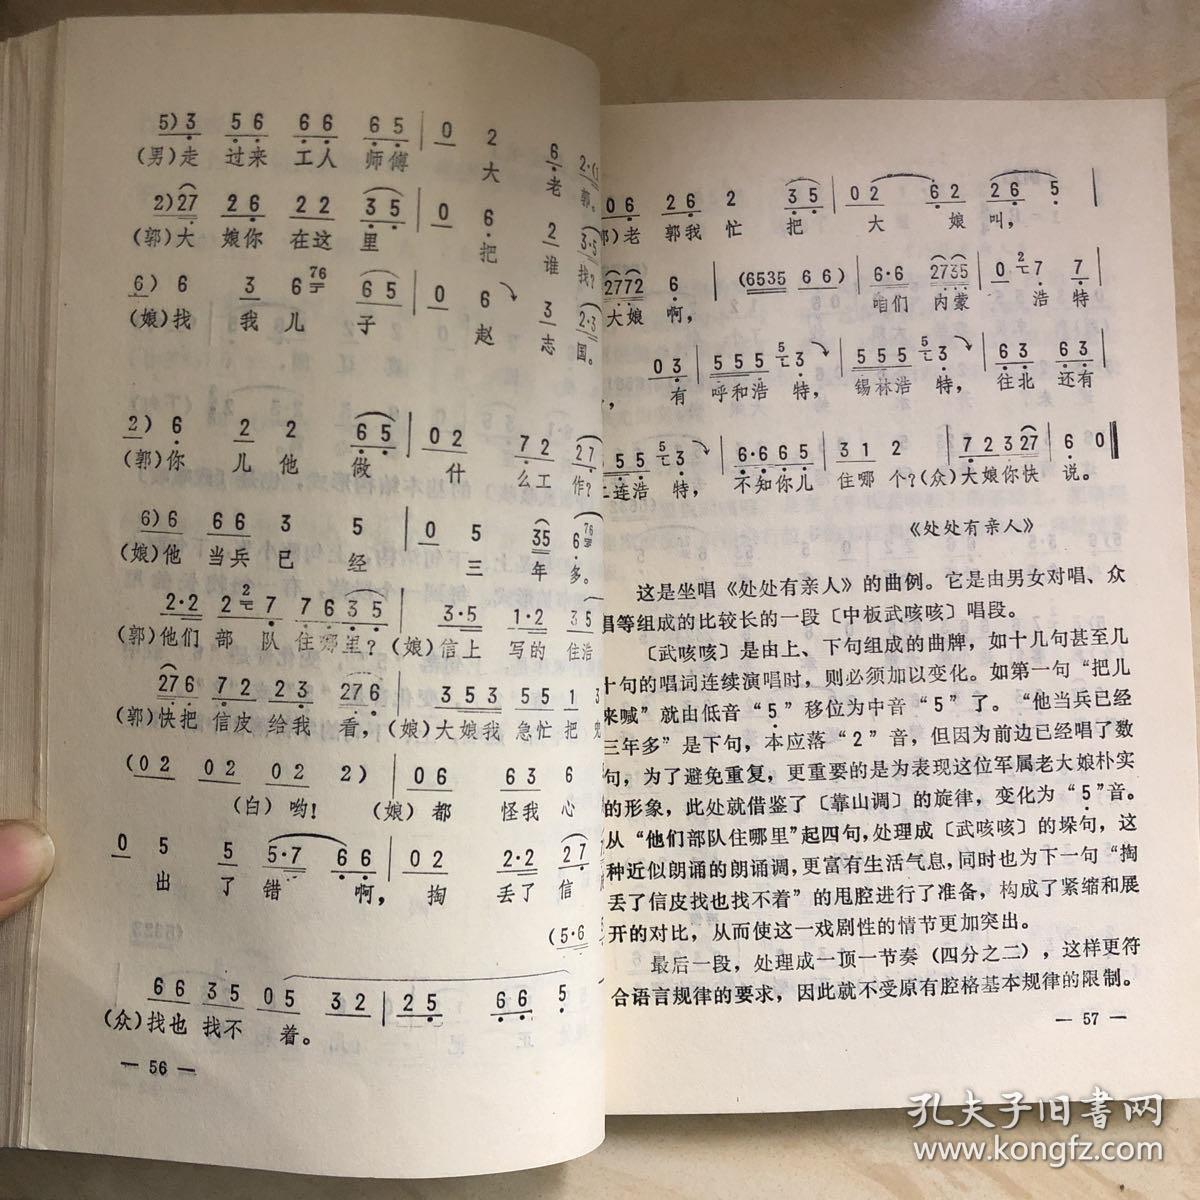 5) 3 5 6 6 6 6 5 | 0 2 6 2·(
(男)走 过来 工人 师傅 大 老 郭。
2) 27 2 6 2 2 3 5 | 0 6 2 3·5
(郭)大 娘你 在这 里 把 谁 找?
6) 6 3 6 76 6 5 | 0 6 3 (2·3
(娘)找 我 儿 子 赵 志 国。
2) 6 2 2 6 5 | 0 2 7 2 27
(郭)你 儿 他 做 什 么工 作?
6) 6 6 6 3 5 | 0 5 35 6· 76
(娘)他 当兵 已 经 三 年 多。
2·2 2 2 7 7 6 3 5 | 3·5 1·2 3 5
(郭)他们 部 队 住哪里? (娘)信上 写的 住浩
27 6 7 2 2 3 27 6 | 3 5 3 5 5 1 3
(郭)快把 信皮 给我 看, (娘)大娘我 急忙 把
(0 2 0 2 0 2 2) | 0 6 6 3 6
(白)哟! (娘) 都 怪我 心
0 5 5 5·7 6 6 | 0 2 2·2 27
出 了 错 啊, 掏 丢了 信
(5·6
6 6 3 5 0 5 3 2 | 2 5 6 6 5
(众)找也 找不 着。
— 56 —
0 6 2 6 2 3 5 | 0 2 6 2 2 6 5
)老 郭我 忙 把 大 娘 叫,
2772 6 | (6535 6 6) | 6·6 2735 | 0 2 7 7
大娘 啊, 咱们 内蒙 浩 特
0 3 | 5 5 5 5 3 | 5 5 5 5 3 | 6 3 6 3
, 有 呼和浩 特, 锡林浩 特, 往北 还有
5 5 5 3 | 6·6 6 5 | 3 1 2 | 7 2 3 27 | 6 0
二连浩 特, 不知你儿 住哪 个?(众)大娘你快 说。
《处处有亲人》
这是坐唱《处处有亲人》的曲例。它是由男女对唱、众
唱等组成的比较长的一段〔中板武咳咳〕唱段。
〔武咳咳〕是由上、下句组成的曲牌，如十几句甚至几
十句的唱词连续演唱时，则必须加以变化。如第一句“把儿
来喊”就由低音“5”移位为中音“5”了。“他当兵已经
三年多”是下句，本应落“2”音，但因为前边已经唱了数
句，为了避免重复，更重要的是为表现这位军属老大娘朴实
的形象，此处就借鉴了〔靠山调〕的旋律，变化为“5”音。
从“他们部队住哪里”起四句，处理成〔武咳咳〕的垛句，这
种近似朗诵的朗诵调，更富有生活气息，同时也为下一句“掏
丢了信皮找也找不着”的甩腔进行了准备，构成了紧缩和展
开的对比，从而使这一戏剧性的情节更加突出。
最后一段，处理成一顶一节奏（四分之二），这样更符
合语言规律的要求，因此就不受原有腔格基本规律的限制。
— 57 —
孔夫子旧书网
www.kongfz.com